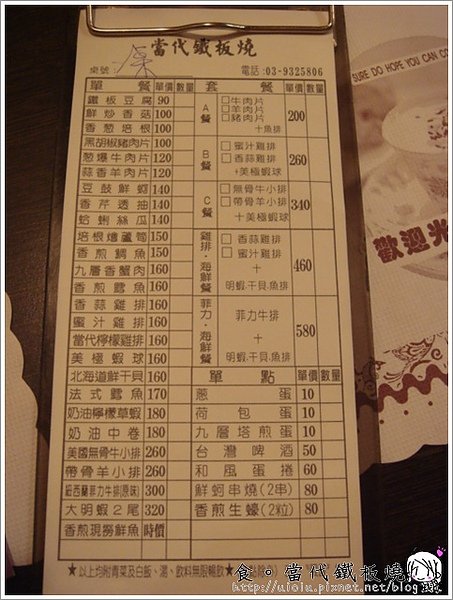 當代鐵板燒
桌號：
電話：03-9325806
單餐 單價 數量
鐵板豆腐 90
鮮炒香菇 100
香葱培根 100
黑胡椒豬肉片 100
葱爆牛肉片 120
蒜香羊肉片 120
豆鼓鮮蚵 140
香芹透抽 140
蛤蜊絲瓜 140
培根燴蘆筍 150
香煎鯛魚 150
九層香蟹肉 160
香煎鱈魚 160
香蒜雞排 160
蜜汁雞排 160
當代檸檬雞排 160
美極蝦球 160
北海道鮮干貝 160
法式鱈魚 170
奶油檸檬草蝦 180
奶油中卷 180
美國無骨牛小排 260
帶骨羊小排 260
紐西蘭菲力牛排(原味) 300
大明蝦2尾 320
香煎現撈鮮魚 時價
套餐 單價 數量
A餐 □牛肉片 □羊肉片 □豬肉片 +魚排 200
B餐 □蜜汁雞排 □香蒜雞排 +美極蝦球 260
C餐 □無骨牛小排 □帶骨羊小排 +美極蝦球 340
雞排·海鮮餐 □香蒜雞排 □蜜汁雞排 + 明蝦.干貝.魚排 460
菲力·海鮮餐 菲力牛排 + 明蝦.干貝.魚排 580
單點 單價 數量
蔥蛋 10
荷包蛋 10
九層塔煎蛋 10
台灣啤酒 50
和風蛋捲 60
鮮蚵串燒(2串) 80
香煎生蠔(2粒) 80
★以上均附青菜及白飯、湯、飲料無限暢飲★
SURE DO HOPE YOU CAN CO
歡迎光
食。當代鐵板燒
http://ululu.pixnet.net/blog